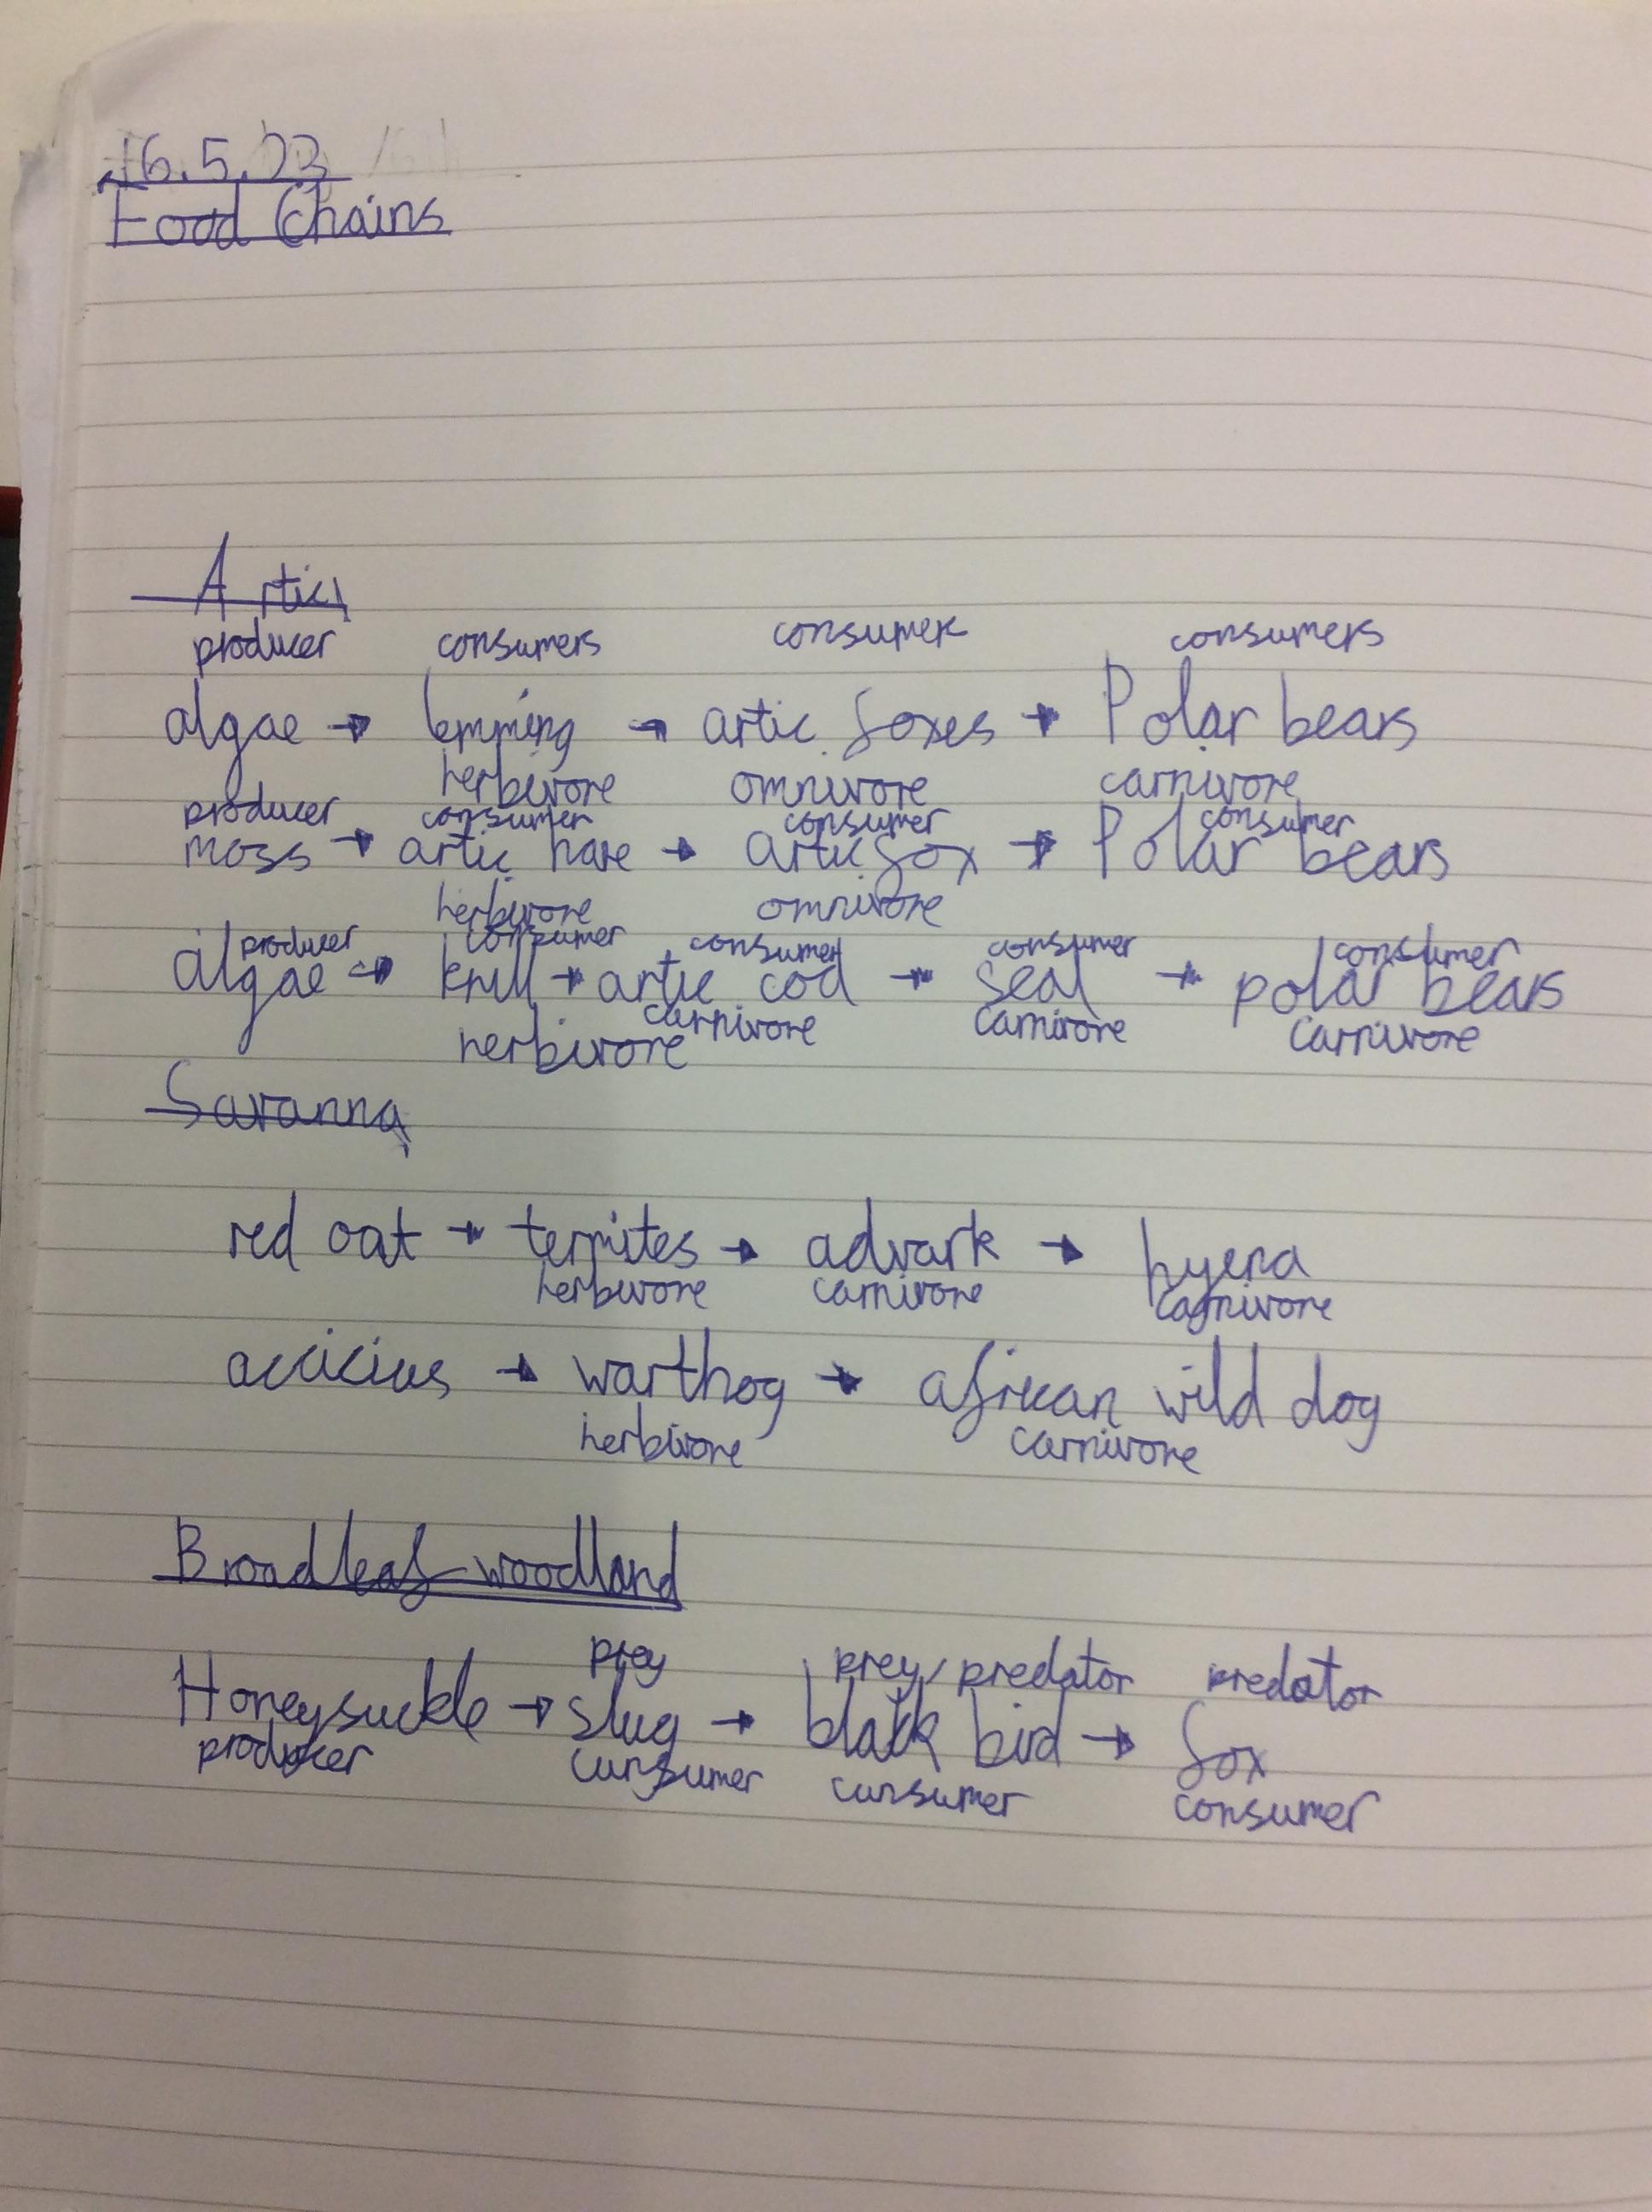 16.5.23
Food Chains
Artic
producer consumers consumer consumers
algae → lemming → artic foxes → Polar bears
herbivore omnivore carnivore
producer consumer consumer consumer
moss → artic hare → artic fox → Polar bears
herbivore omnivore
producer consumer consumer consumer consumer
algae → krill → artic cod → seal → polar bears
herbivore carnivore carnivore carnivore
Savanna
red oat → termites → advark → hyena
herbivore carnivore carnivore
accicius → warthog → african wild dog
herbivore carnivore
Broadleaf woodland
prey prey/predator predator
Honeysuckle → slug → black bird → fox
producer cunsumer cunsumer consumer